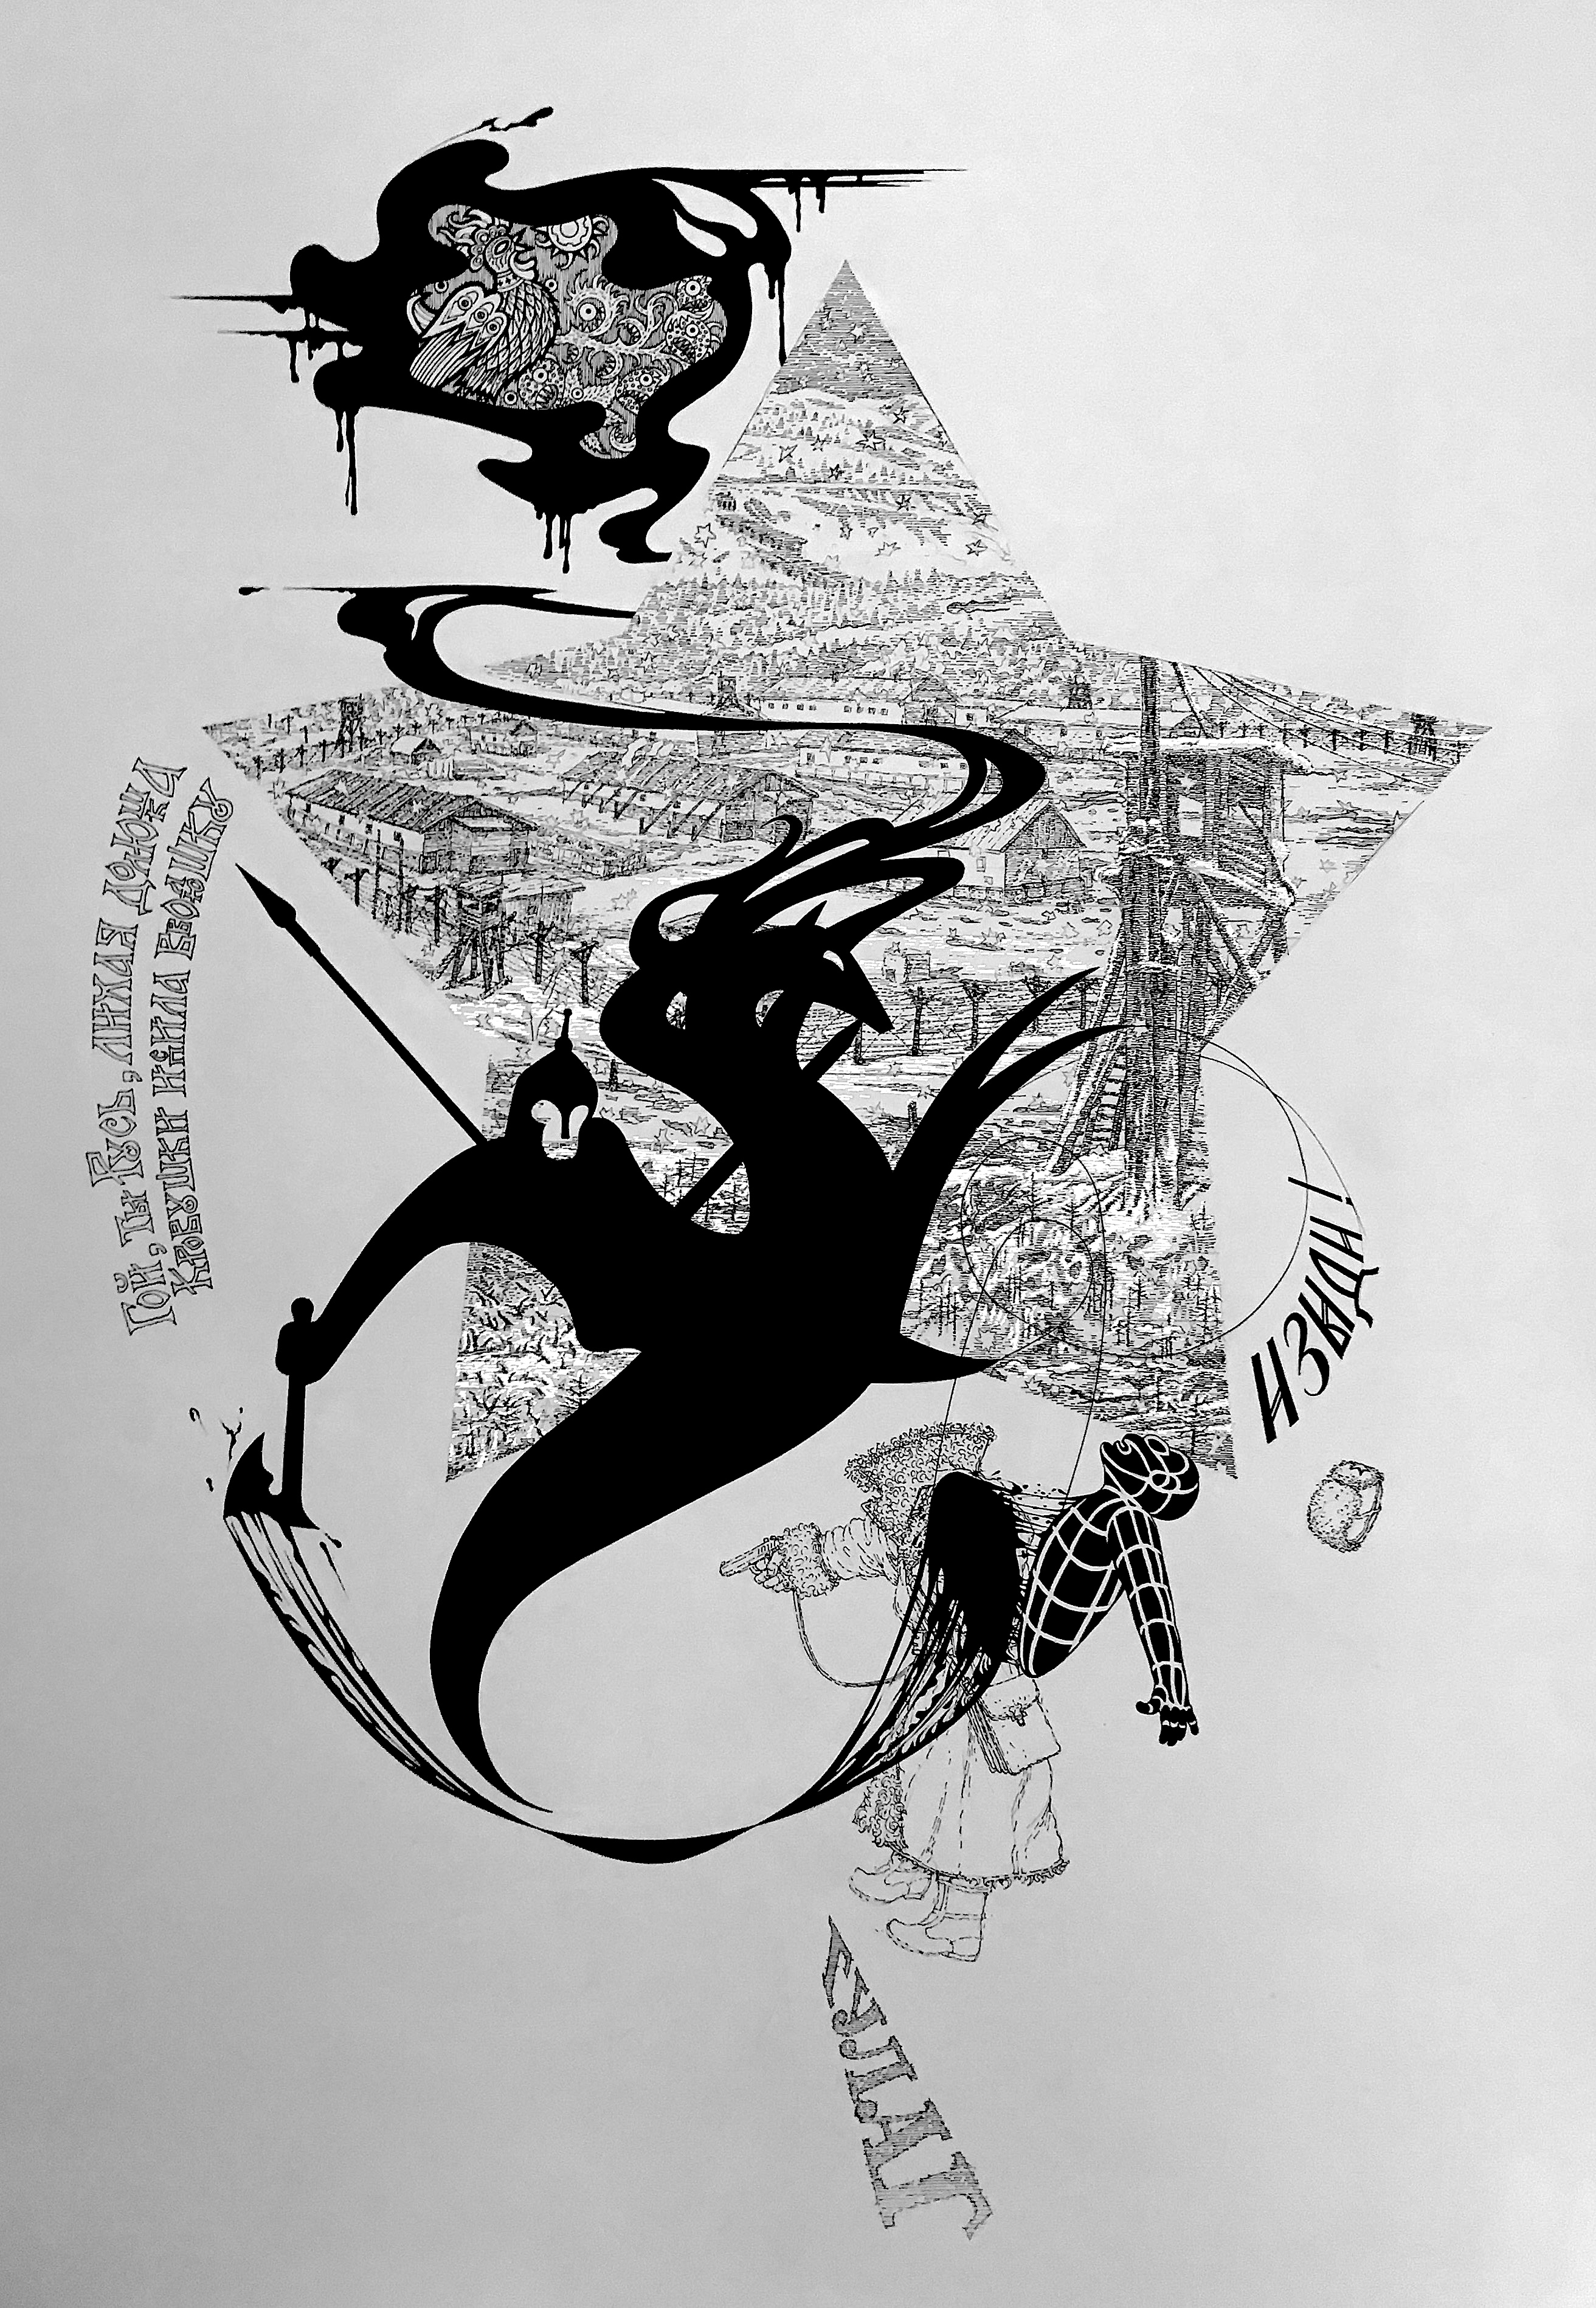 Гой, ты Русь, лихая долюшка
Кровушки испила вволюшку
ИЗЫДИ!
ГУЛАГ